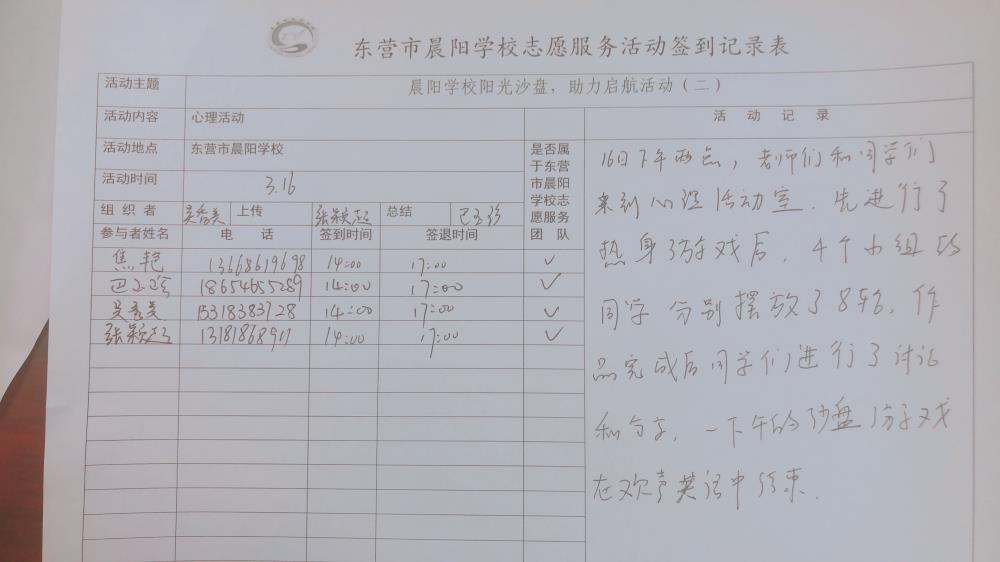 东营市晨阳学校志愿服务活动签到记录表
活动主题 晨阳学校阳光沙盘，助力启航活动（二）
活动内容 心理活动 活动记录
活动地点 东营市晨阳学校
活动时间 3.16
是否属
于东营
市晨阳
学校志
愿服务
团队
组织者 吴秀美 上传 张颖超 总结
参与者姓名 电话 签到时间 签退时间
焦艳 13668619698 14:00 17:00 ✓
18654655289 14:00 17:00 ✓
吴秀美 15318383728 14:00 17:00 ✓
张颖超 14:00 17:00 ✓
16日下午两点，老师们和同学们
来到心理活动室．先进行了
热身游戏后，4个小组的
同学分别摆放了8轮，作
品完成后同学们进行了讨论
和分享，一下午的沙盘游戏
在欢声笑语中结束．